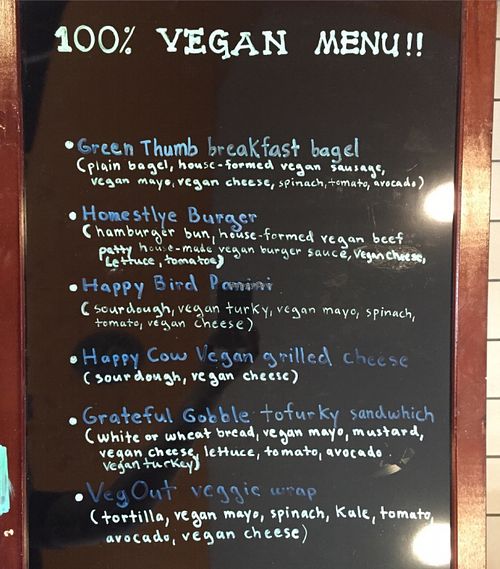 100% VEGAN MENU!!
• Green Thumb breakfast bagel
(plain bagel, house-formed vegan sausage,
vegan mayo, vegan cheese, spinach, tomato, avocado)
• Homestlye Burger
(hamburger bun, house-formed vegan beef
patty house-made vegan burger sauce, vegan cheese,
Lettuce, tomatoes)
• Happy Bird Panini
(sourdough, vegan turky, vegan mayo, spinach,
tomato, vegan cheese)
• Happy Cow Vegan grilled cheese
(sourdough, vegan cheese)
• Grateful Gobble tofurky sandwhich
(white or wheat bread, vegan mayo, mustard,
vegan cheese, lettuce, tomato, avocado.
vegan turkey)
• VegOut veggie wrap
(tortilla, vegan mayo, spinach, Kale, tomato,
avocado, vegan cheese)